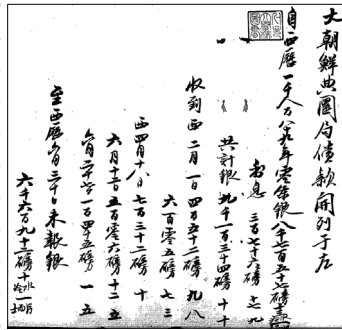 大朝鮮典圜局債款開列于左
自西曆一千八百八九年零售銀八千七百五十七磅
利息 三百七十六磅
共計銀 九千一百三十四磅 十 十
收到西 二月一日四百五十二磅 九 八
六百零五磅 七 三
西四月十八 七百三十二磅 十
六月十二日 五百零六磅 十二 五
二千 一百四十五磅 一 五
至西曆 六月三十日 未報銀
六千六百九十三磅 十